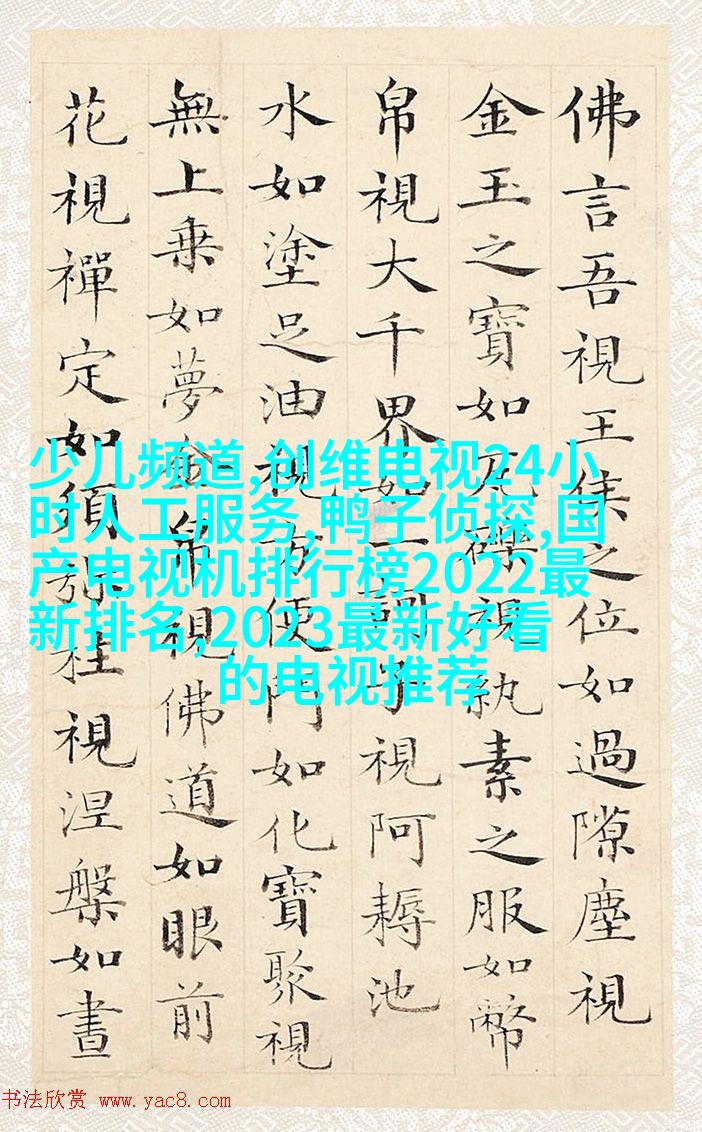 佛言吾視王侯之位如過隙塵視
金玉之寶如瓦礫視紈素之服如幣
帛視大千界如一訶子視阿耨池
水如塗足油視方便門如化寶聚視
無上乗如夢金帛視佛道如眼前
花視禪定如須弥柱視涅槃如晝
少儿频道,创维电视24小
时人工服务,鸭子侦探,国
产电视机排行榜2022最
新排名,2023最新好看
的电视推荐
书法欣赏 www.yac8.com